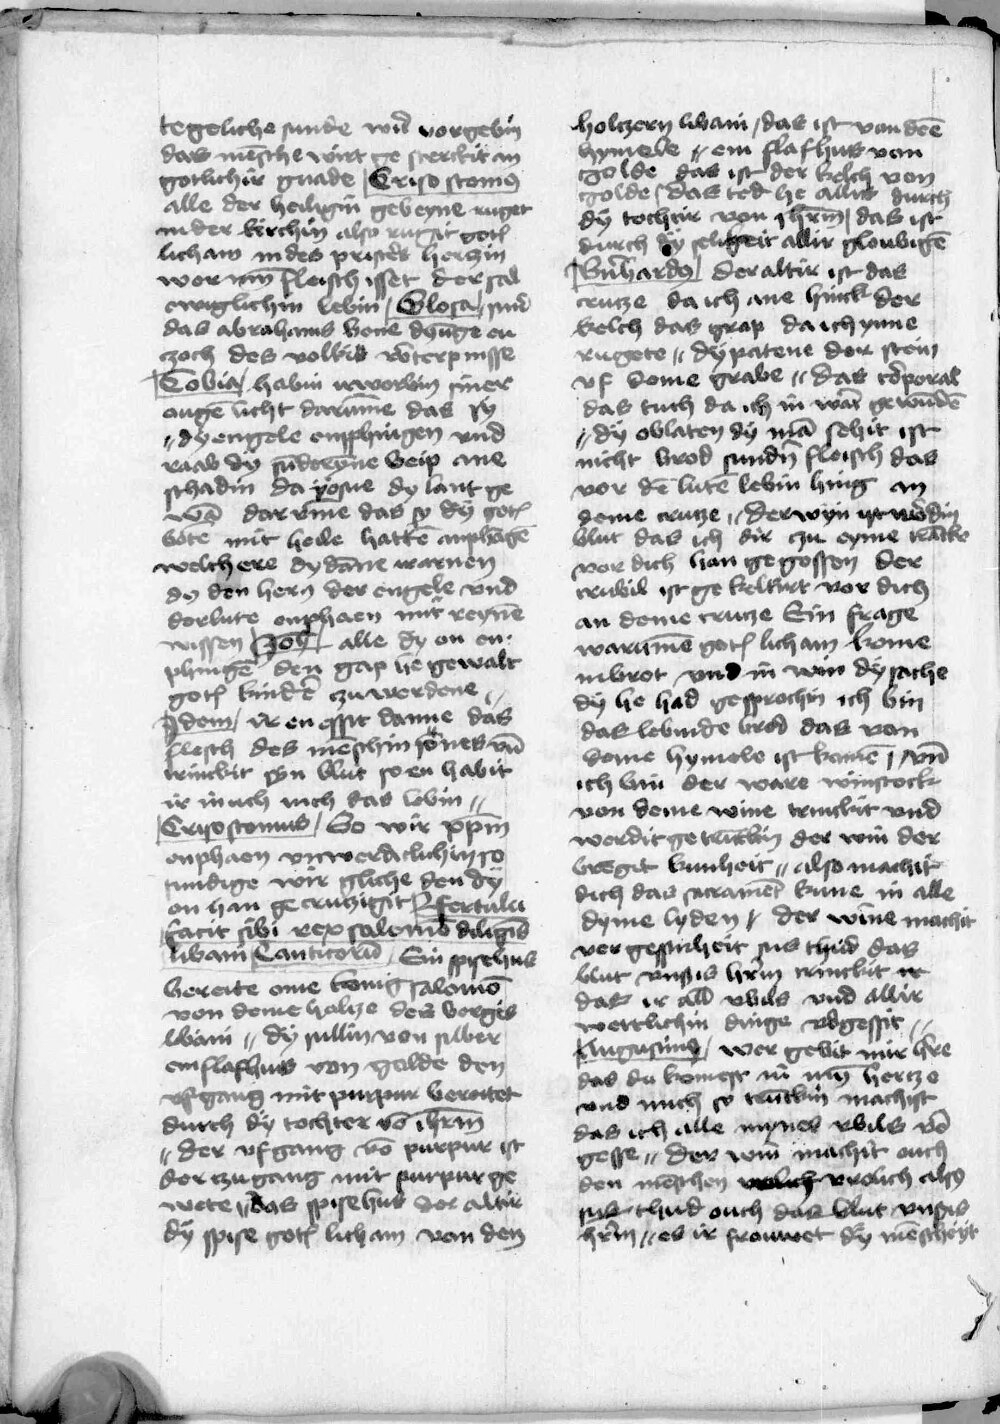 tegeliche sunde wirt vorgebin
das mēsche wirt ge sterckit an
gotlichir gnade Crisostomꝰ
alle der heiligin gebeyne ruget
in der kirchin also ruget gotꝭ
licham in des pristers herczin
wer myn fleisch isset der sal
ewiglichin lebin Glosa sint
das abrahams bone
czoch des volkis
Tobia habin siner
ougē licht darūme das sy
dy engele emphingen vnd
raab dy sūderyne bleip ane
schadin da yosue dy lant ge
wā dar vme das sy dy gotꝭ
bote mit heile hattē enphāgē
welchere dydāne warnen
dy den hern der engele vnd
der lute enphaen mit reynē
wissen Joh̄ alle dy en en
phingē den gap he gewalt
gotꝭ kindere czu werdene
Idem ir en essit danne das
fleisch des mēschin sones vn̄
trinkit syn blut so en habit
ir in uch nich das lebin
Crisostomus So wir xp̄m
enphaen vnwerdiclichin so
sundige wir gliche den dy
en han gecruczigit ffertulū
facit sibi rex salomō de lignis
libani Canticorū Ein spisehus
bereite eme konig salomō
von deme holcze des berges
libani dy sullin von silber
ein slafhus von golde den
vfgang mit purpur bereitet
durch dy tochter vō ihrm̄
der vfgang vō purpur ist
der czugang mit purpur ge
wete das spisehus der altir
dy spise gotꝭ licham von dem
holczern libani das ist von dēe
hymele ein slafhus von
golde das ist der kelch von
golde das ted he allis durch
dy tochtir von ihrm̄ das ist
durch dy selikeit allir gloubigē
Bn̄hardꝰ der altir ist das
crucze da ich ane hinck der
kelch das grap da ich ynne
rugete dy patene der stein
vf deme grabe das corporal
das tuch da ich in wart gewūdē
dy oblaten dy mā sehit ist
nicht brod sundn̄ fleisch das
vor dē lutē lebin hing an
deme crucze der wyn ist wordin
blut das ich dir czu eyme trancke
vor dich han gegossen der
trubil ist gekeltirt vor dich
an deme crucze Ein frage
warūme gotꝭ licham kome
in brot vnd in win dy sache
dy he had gesprochin ich bin
das lebinde brod das von
deme hymele ist komē vn̄
ich bin der ware winstock
von deme wine trinckit vnd
werdit getrūckin der win der
weget kunheit also machit
dich das sacramēt kune in alle
dyme lyden der wine machit
vergessinheit sus thud das
blut vnsis hr̄in trinckit ir
das ir alle vbils vnd allir
wertlichin dinge vorgessit
Augustinꝰ wer gebit mir hr̄e
das du komest in myn hercze
vnd mich so trūckin machist
das ich alle mynes vbils vor
gesse der win machit ouch
den menschen vrolich also
sus thud ouch das blut vnsis
hr̄in es ir frouwet dy mēscheyt